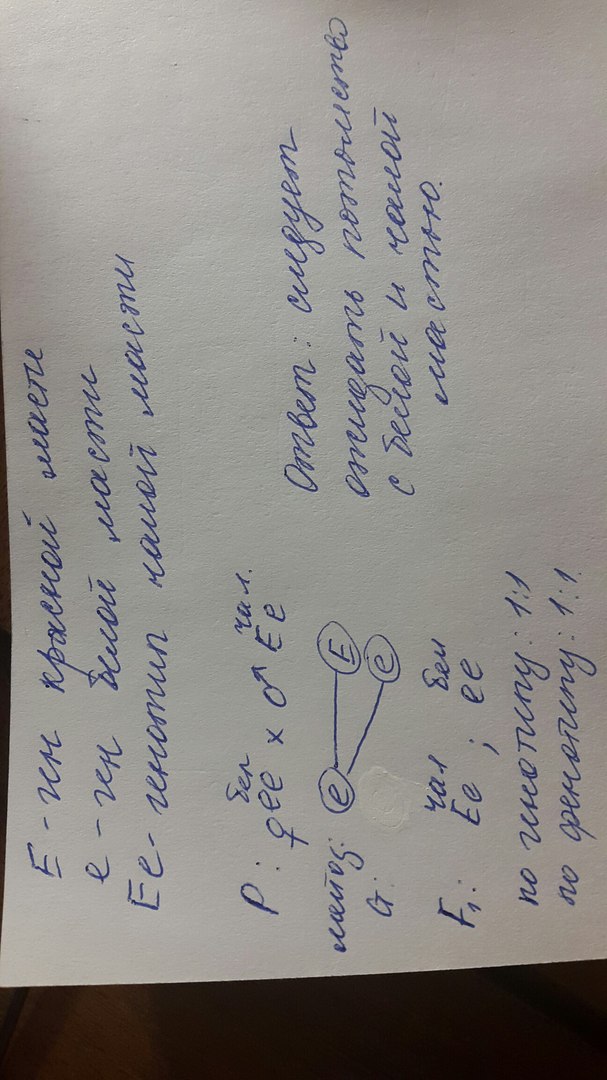 E - ген красной масти
e - ген белой масти
Ee - генотип чалой масти
бел чал.
P: ♀ ee x ♂ Ee
мейоз:
G: e E e
чал бел
F₁: Ee ; ee
по генотипу: 1:1
по фенотипу: 1:1.
Ответ: следует
ожидать потомство
с белой и чалой
мастью.